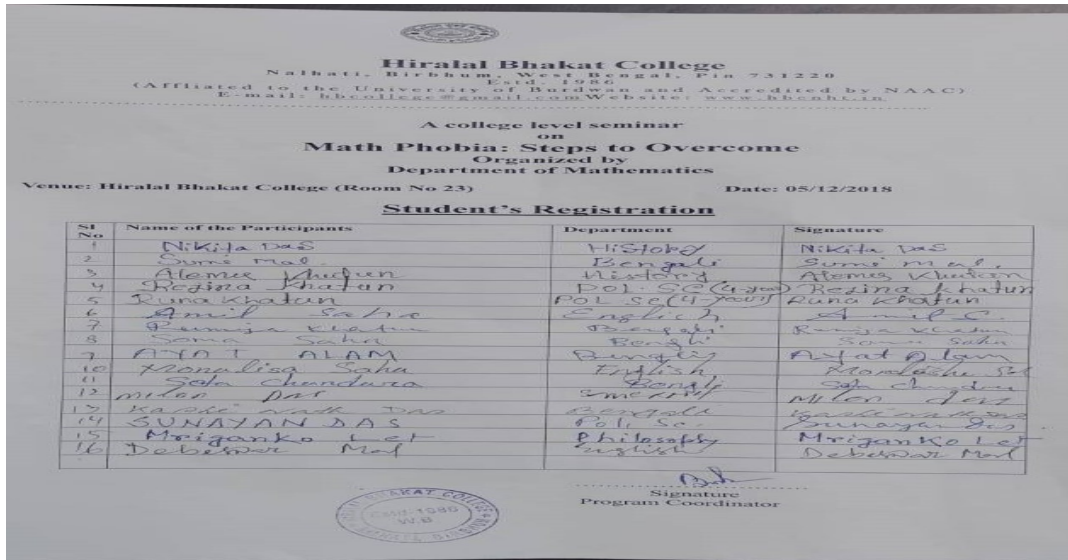 Hiralal Bhakat College
Nalhati, Birbhum, West Bengal, Pin 731220
Estd. 1986
(Affiliated to the University of Burdwan and Accredited by NAAC)
E-mail: hbcollege@gmail.com Website: www.hbcnht.in
A college level seminar
on
Math Phobia: Steps to Overcome
Organized by
Department of Mathematics
Venue: Hiralal Bhakat College (Room No 23) Date: 05/12/2018
Student's Registration
Sl No Name of the Participants Department Signature
1 Nikita Das History Nikita Das
2 Sumi Mal. Bengali Sumi Mal.
3 Khatun History Khatun
4 Rezina Khatun POL. SC (4-year) Rezina Khatun
5 Runa Khatun POL. SC (4-year) Runa Khatun
6 Amil Saha English Amil S.
7 Rumija Khatun Bengali Rumija Khatun
8 Soma Saha Bengli Soma Saha
9 AYAT ALAM Bengali Ayat Alam
10 Monalisa Saha English
11 Chandara Bengli
12 Milon Das Milon
13 Kashi nath Das Bengali Kashi nath Das
14 SUNAYAN DAS Poli Sc. Sunayan Das
15 Mriganko Let Philosophy Mriganko Let
16 Debeswar Mal English Debeswar Mal
Signature
Program Coordinator
BHAKAT COLLEGE
Estd-1986
W.B